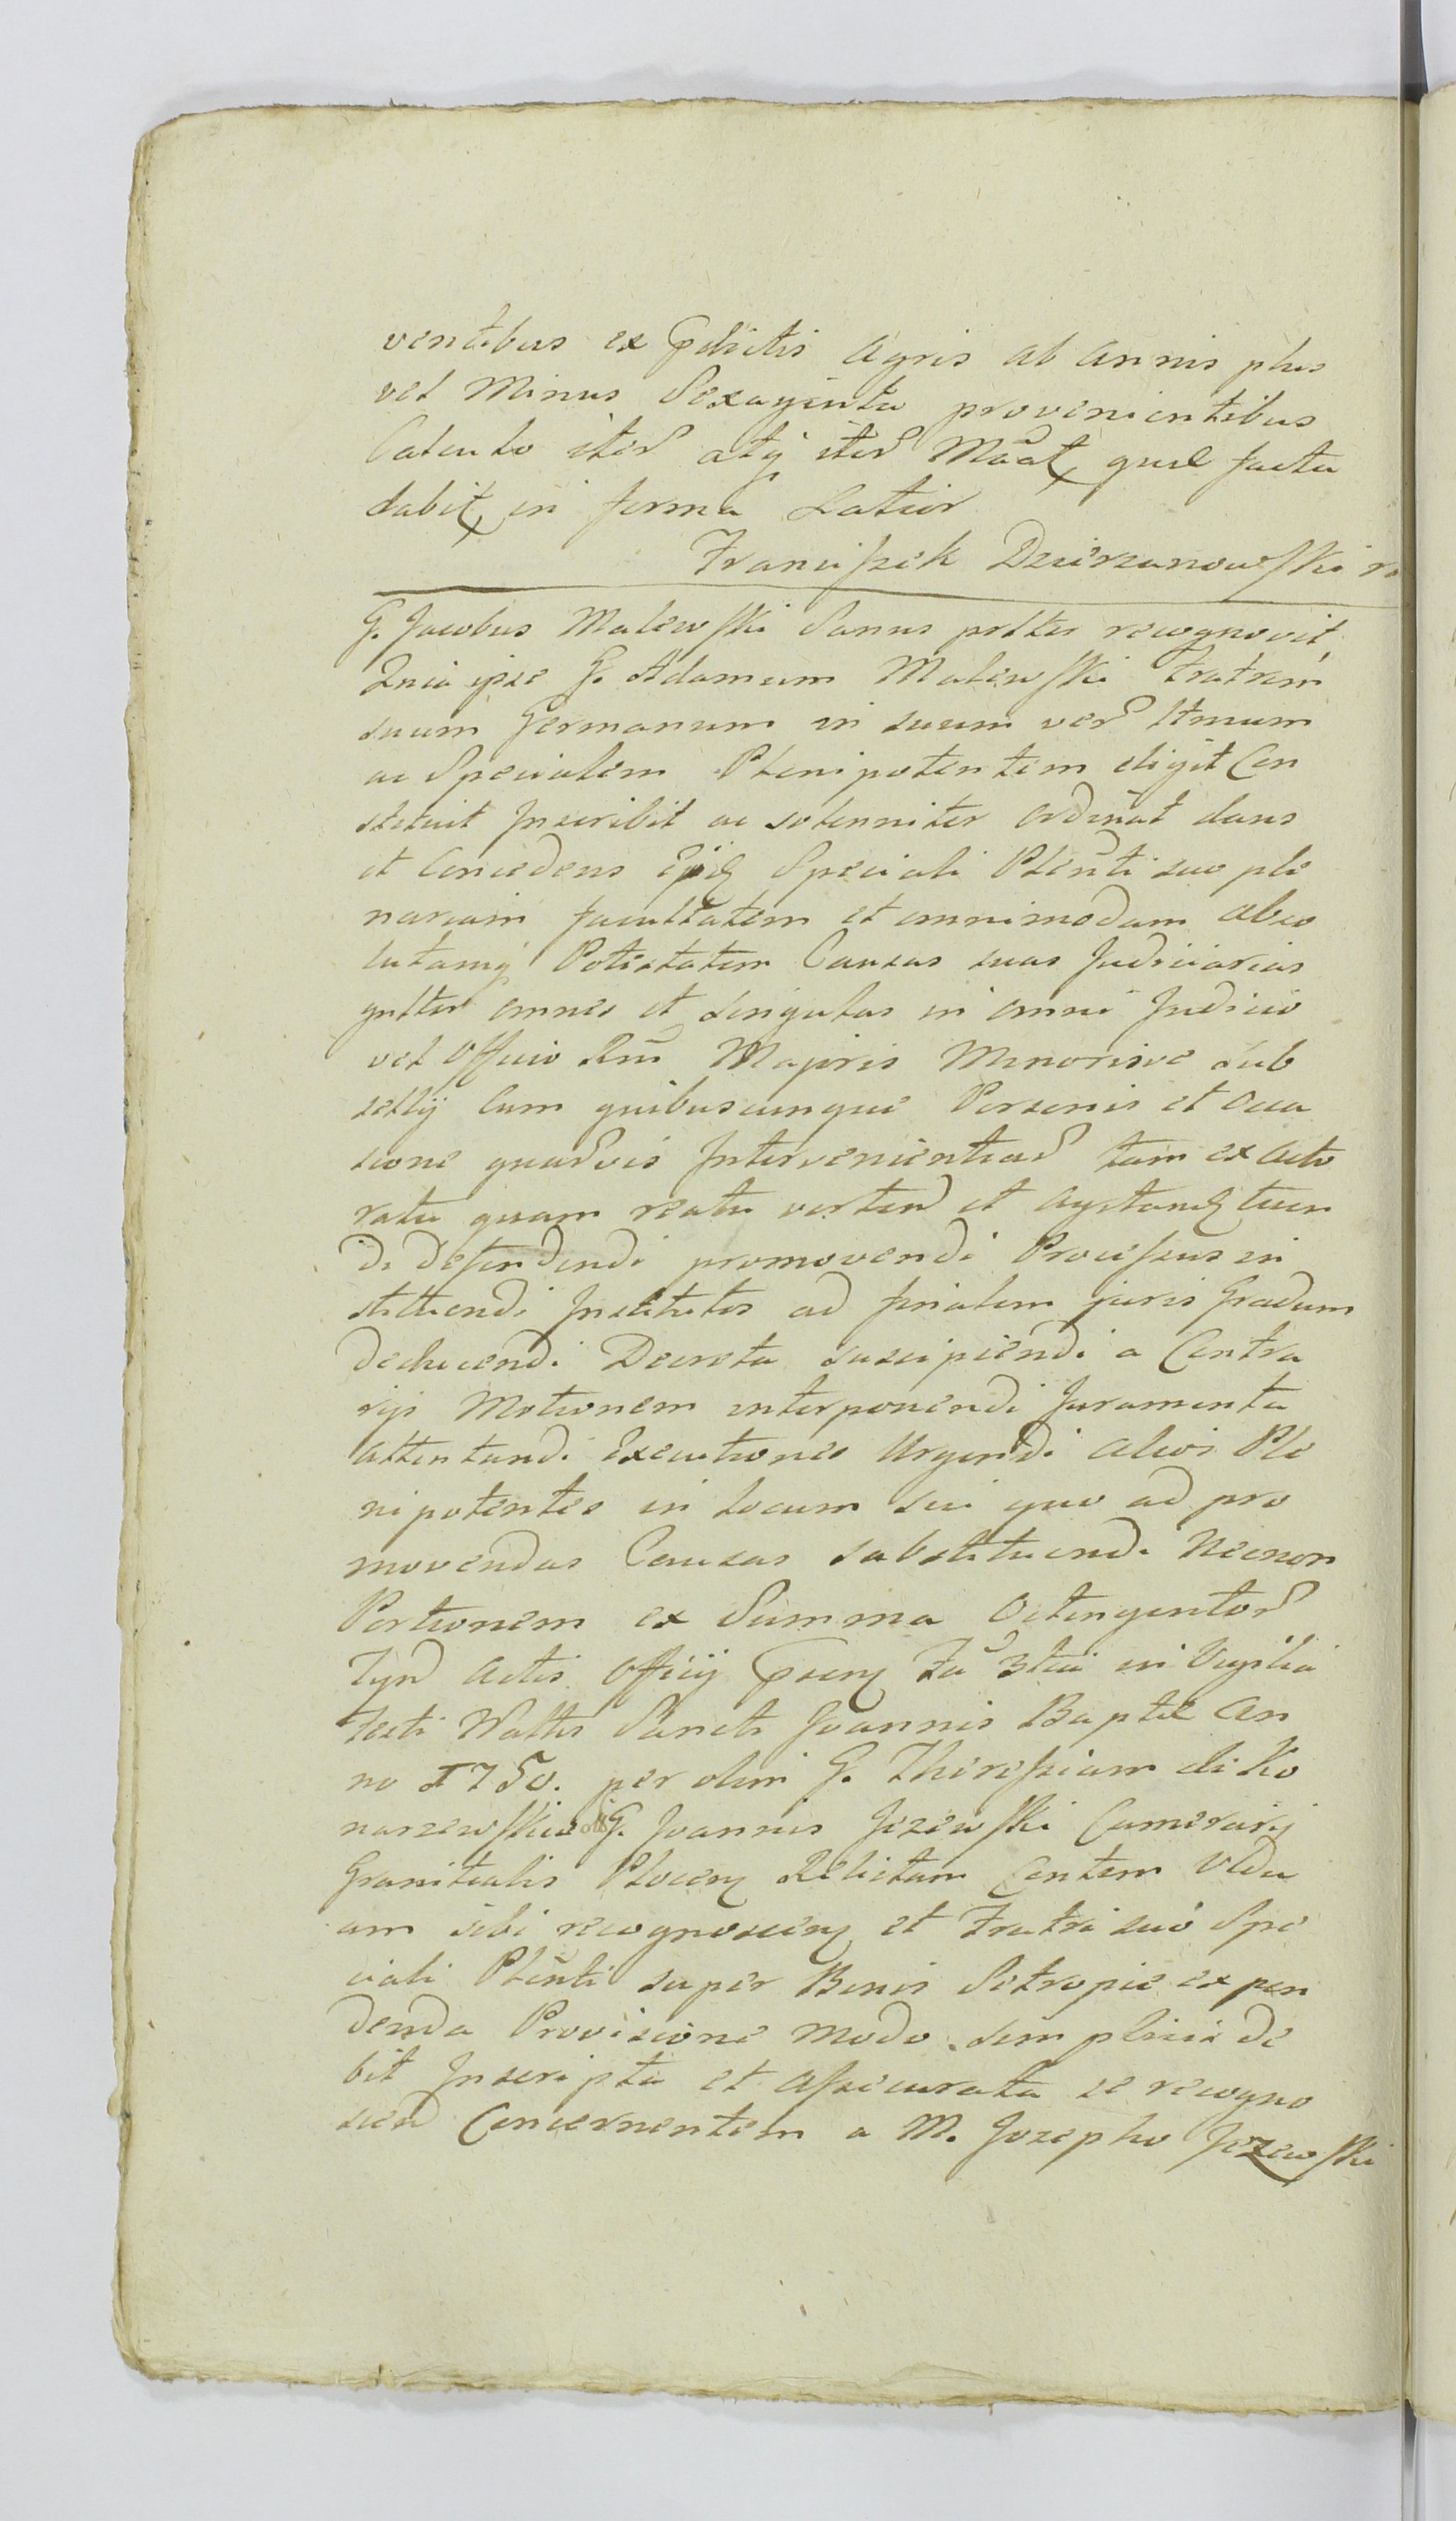 ventibus ex Pdictis Agris ab Annis plus
vel Minus Sexaginta provenientibus
Calculo iter atq iter Maat, quæ facta
dabit, in forma Latior
Franciszek Dzierzanowski
G. Jacobus Malewski Sanus pltter recognovit,
Quia ipse G. Adamum Malewski Fratrem
suum Germanum in suum ver ltmum
ac Specialem Plenipotentem eligit Con
stituit Inscribit ac solenniter Ordinat dans
et Concedens Speciali Plenti suo ple
nariam facultatem et omnimodam abso
lutamq Potestatem Causas suas Judiciarias
gntter omnes et singulas in omni Judicio
vel Officio Rni Majoris Minorisve Sub
sellij Cum quibuscunque Personis et Occa
sione quarvis Intervenientiar tam ex acto
ratu quam reatu verten et agitan tuen
di defendendi promovendi Processus in
stituendi Institutos ad finalem juris Gradum
deducendi Decreta suscipiendi a Contra
rijs Motionem interponendi Juramenta
Attentandi Executiones Urgendi alios Ple
nipotentes in locum sui quo ad pro
movendas Causas substituendi Necnon
Portionem ex Summa Octingentor
Tyn Actis Officij Fa 3tia in Vigilia
Festi Nattis Sancti Joannis Baptæ An
no 1750. per olim G. Theressiam de Ko
narzewskie olim G. Joannis Jezewski Camerarij
Granitialis Plocen Relictam Contem Vidu
am sibi recognoscen et Fratri suo Spe
ciali Plenti super Bonis Setropie expen
denda Provisione modo simplicis de
bit Inscripta et assecurata se recogno
scen Concernentem a M. Josepho Jezewski